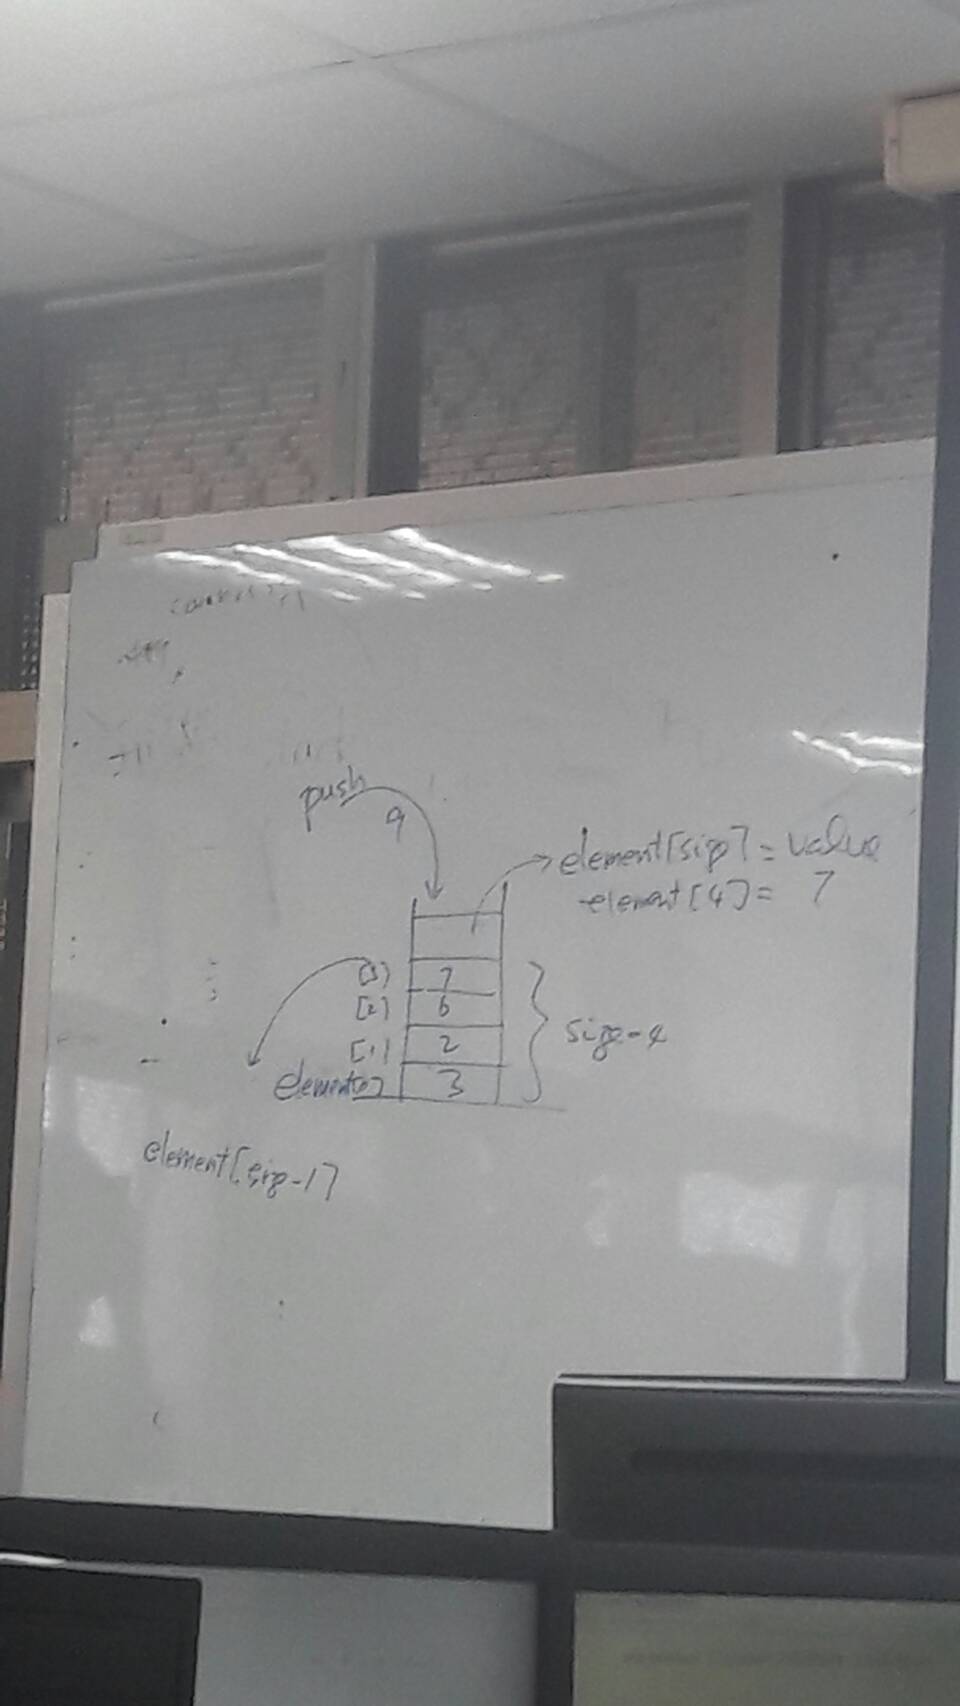 push
9
element[size] = value
element[4] = 7
[3] 7
[2] 6
size = 4
[1] 2
element[0] 3
element[size-1]